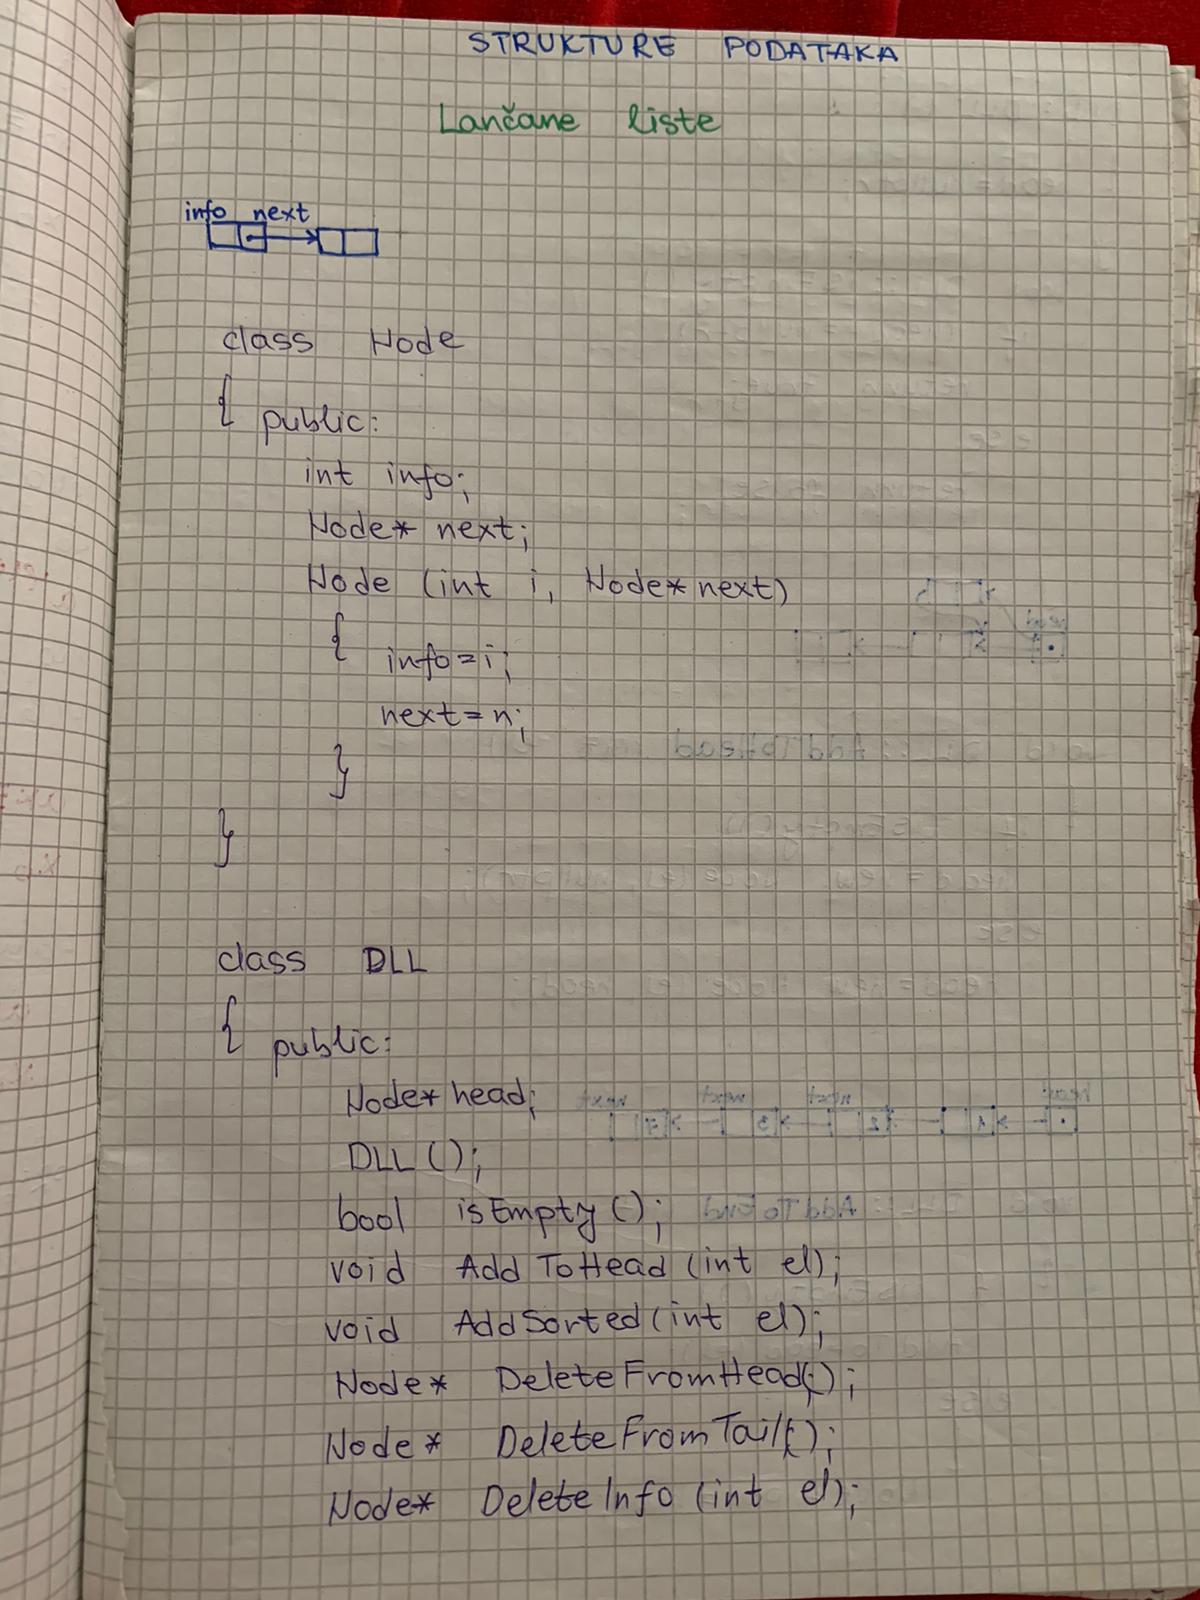 STRUKTURE PODATAKA
Lančane liste
info next
class Node
{ public:
int info;
Node* next;
Node (int i, Node* next)
{ info=i;
next=n;
}
}
class DLL
{ public:
Node* head;
DLL ();
bool isEmpty ();
void AddToHead (int el);
void AddSorted (int el);
Node* DeleteFromHead();
Node* DeleteFromTail();
Node* DeleteInfo (int el);